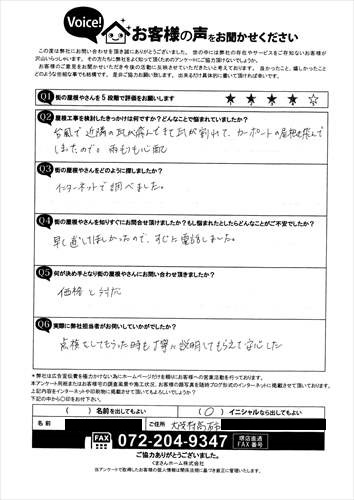 Voice!
お客様の声をお聞かせください
この度は弊社にお問い合わせを頂き誠にありがとうございました。世の中には弊社の存在やサービスをご存知ないお客様が
沢山いらっしゃいます。その方たちに弊社をよく知って頂くためのアンケートにご協力頂けないでしょうか。
お客様のご意見をお聞かせいただき今後の活動に反映させていただきたいと考えております。良かったこと、嬉しかったこと
どのような些細な事でも結構です。是非ご協力お願い致します。出来るだけ具体的に書いて頂ければ幸いです。
Q1 街の屋根やさんを5段階で評価をお願いします ★ ★ ★ ★ ☆
Q2 屋根工事を検討したきっかけは何ですか?どんなことで悩まれていましたか?
台風で近隣の瓦が飛んできて瓦が割れて、カーポートの屋根も飛んで
しまったので。雨もりも心配
Q3 街の屋根やさんをどのように探しましたか?
インターネットで調べました。
Q4 街の屋根やさんを知りすぐにお問合せ頂けましたか?もし悩まれたとしたらどんなことがご不安でしたか?
早く直してほしかったので、すぐに電話しました。
Q5 何が決め手となり街の屋根やさんにお問い合わせ頂きましたか?
価格と対応
Q6 実際に弊社担当者がお伺いしていかがでしたか?
点検をしてもらった時も丁寧に説明してもらえて安心した
＊弊社は広告宣伝費を極力かけない為にホームページだけを頼りにお客様への営業活動を行っております。
本アンケート用紙またはお客様宅の調査風景や施工状況、お客様の顔写真を随時ブログ形式のインターネットに掲載させて頂いております。
上記内容をインターネットや印刷物に掲載させて頂いてもよろしいでしょうか?
下記の中から○印をお付け下さい。
( ) 名前を出してもよい ( ○ ) イニシャルなら出してもよい
名 前 ご住所 大阪府
FAX 072-204-9347 堺店直通 FAX 番号
ご協力ありがとうございました。
くまさんホーム株式会社
当アンケートで取得したお客様の個人情報は関係法規に基づき厳正に管理いたします。